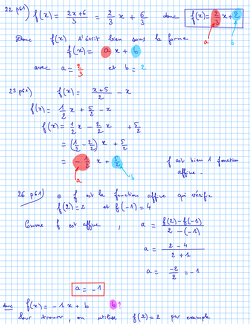 22 p61) f(x) = 2x+6/3 = 2/3 x + 6/3 donc f(x) = 2/3 x + 2
a b
Donc f(x) s'écrit bien sous la forme
f(x) = a x + b
avec a = 2/3 et b = 2
23 p61) f(x) = x+5/2 - x
f(x) = 1/2 x + 5/2 - x
f(x) = 1/2 x - 2/2 x + 5/2
= (1/2 - 2/2) x + 5/2
= -1/2 x + 5/2
a b
f est bien 1 fonction
affine
26 p61) f est la fonction affine qui vérifie
f(2) = 2 et f(-1) = 4
Comme f est affine, a = f(2) - f(-1)/2 - (-1)
a = 2 - 4/2 + 1
a = -2/2 = -1
a = -1
donc f(x) = -1 x + b b?
Pour trouver, on utilise f(2) = 2 par exemple